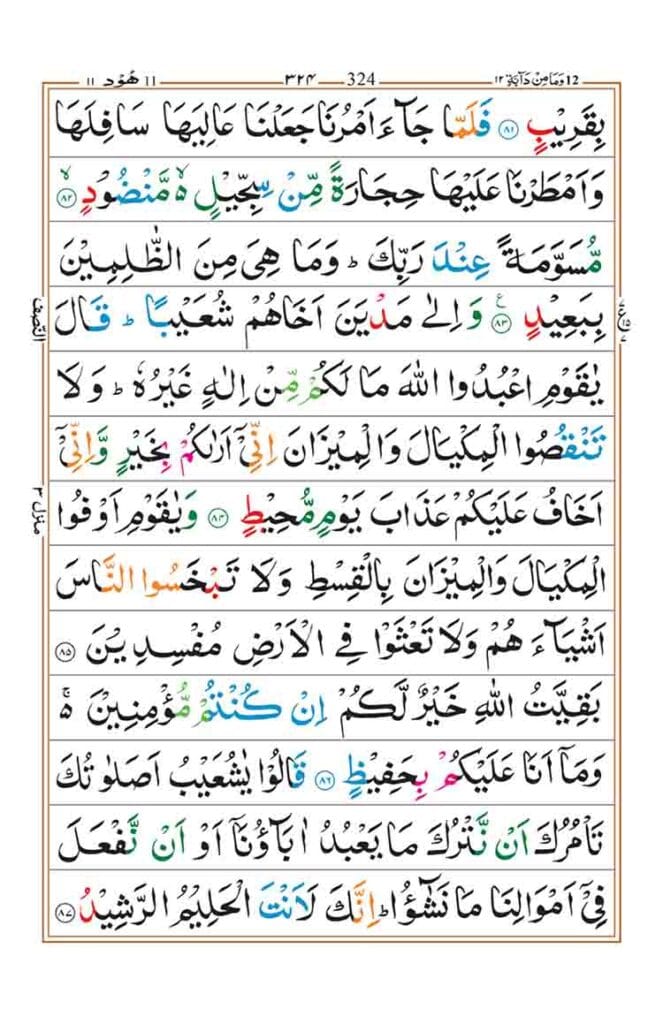 12 وَمَا مِنْ دَآبَّةٍ ١٢ 324 ٣٢٤ 11 هُوْد ١١
بِقَرِيْبٍ ٨١ فَلَمَّا جَآءَ اَمْرُنَا جَعَلْنَا عَالِيَهَا سَافِلَهَا
وَاَمْطَرْنَا عَلَيْهَا حِجَارَةً مِّنْ سِجِّيْلٍ ەۙ مَّنْضُوْدٍ ۙ ٨٢
مُّسَوَّمَةً عِنْدَ رَبِّكَ ؕ وَمَا هِيَ مِنَ الظّٰلِمِيْنَ
بِبَعِيْدٍ ٨٣ ع وَاِلٰى مَدْيَنَ اَخَاهُمْ شُعَيْبًا ؕ قَالَ
يٰقَوْمِ اعْبُدُوا اللّٰهَ مَا لَكُمْ مِّنْ اِلٰهٍ غَيْرُهٗ ؕ وَلَا
تَنْقُصُوا الْمِكْيَالَ وَالْمِيْزَانَ اِنِّيْٓ اَرٰىكُمْ بِخَيْرٍ وَّاِنِّيْٓ
اَخَافُ عَلَيْكُمْ عَذَابَ يَوْمٍ مُّحِيْطٍ ٨٤ وَيٰقَوْمِ اَوْفُوا
الْمِكْيَالَ وَالْمِيْزَانَ بِالْقِسْطِ وَلَا تَبْخَسُوا النَّاسَ
اَشْيَآءَ هُمْ وَلَا تَعْثَوْا فِي الْاَرْضِ مُفْسِدِيْنَ ٨٥
بَقِيَّتُ اللّٰهِ خَيْرٌ لَّكُمْ اِنْ كُنْتُمْ مُّؤْمِنِيْنَ ەۚ
وَمَآ اَنَا عَلَيْكُمْ بِحَفِيْظٍ ٨٦ قَالُوْا يٰشُعَيْبُ اَصَلٰوتُكَ
تَاْمُرُكَ اَنْ نَّتْرُكَ مَا يَعْبُدُ اٰبَآؤُنَآ اَوْ اَنْ نَّفْعَلَ
فِيْٓ اَمْوَالِنَا مَا نَشٰٓؤُا ؕ اِنَّكَ لَاَنْتَ الْحَلِيْمُ الرَّشِيْدُ ٨٧
النّصف
منزل ٣